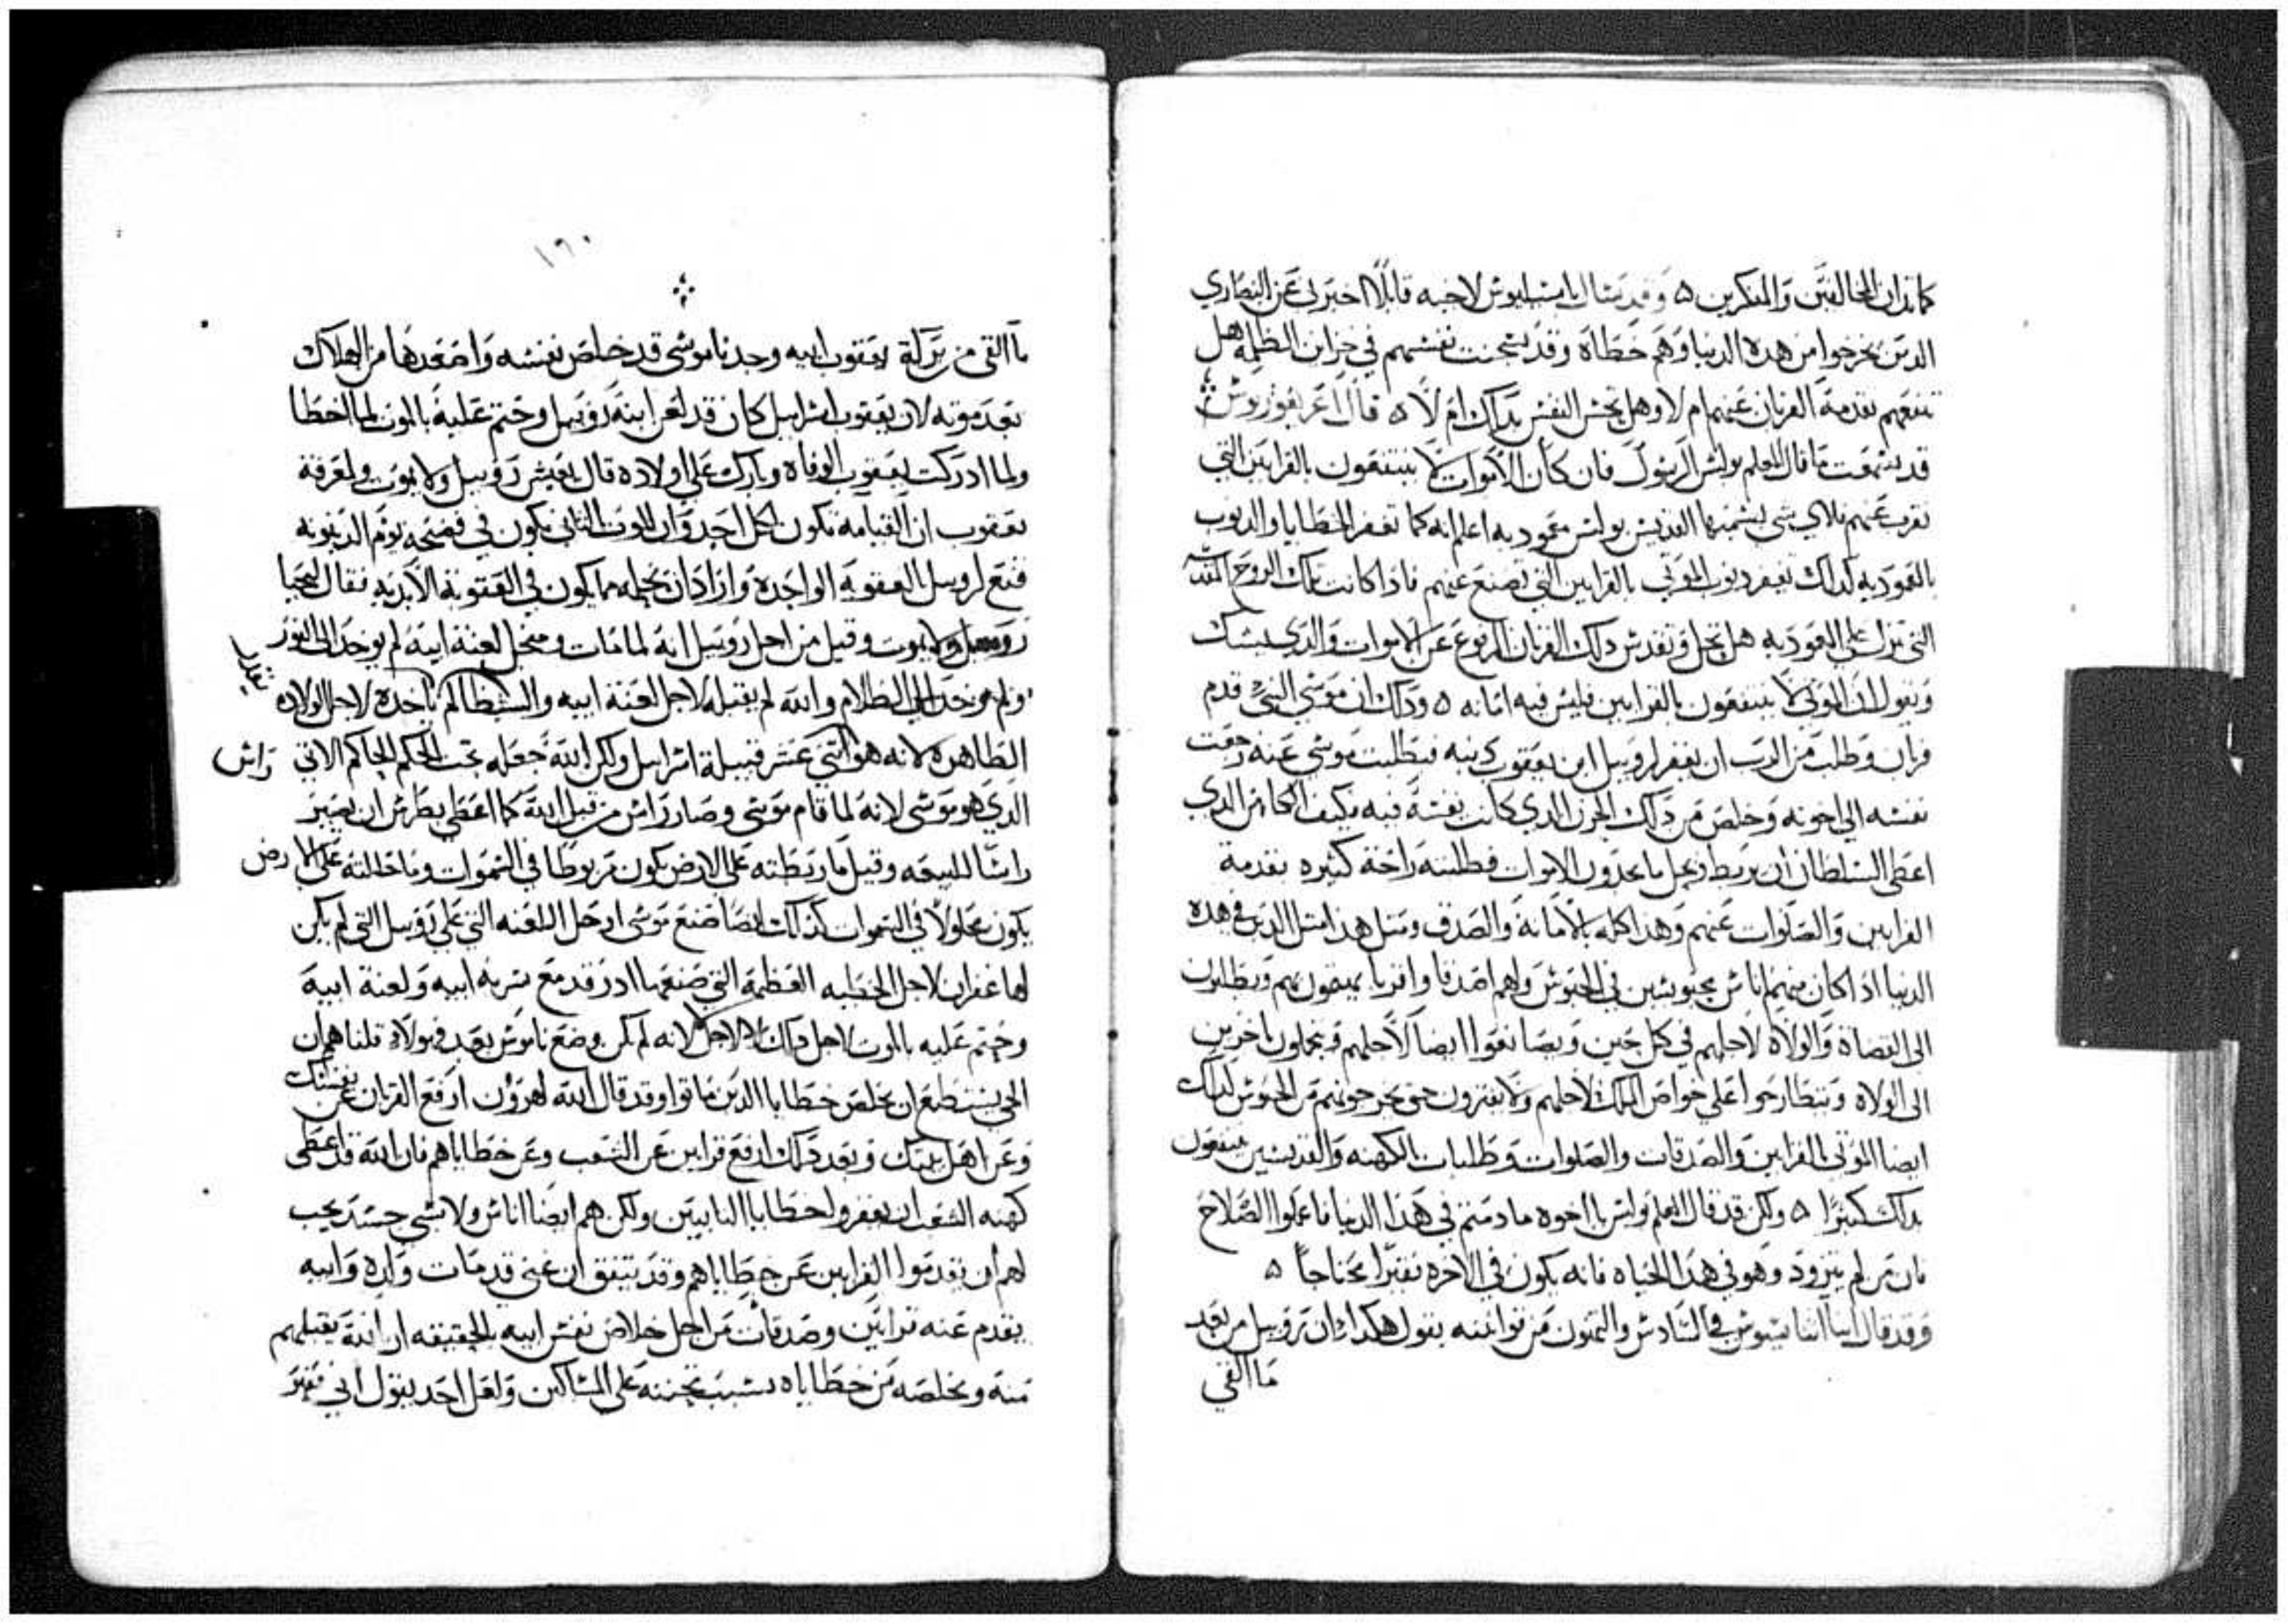 كما بدان المخالفين والمنكرين ۵ وقد سال باسيليوس لاخيه قايلًا اخبرني عن النصاري
الدين يخرجوا من هده الدنيا وهم خطاه وقد سجنت نفسهم في خزاين الظلمه هل
تنفعهم تقدمة القربان عنهم ام لا وهل تحس النفس بداك ام لا ۵ قال اغريغوريوس
قد سمعت ما قال المعلم بولس الرسول فان كان الاموات لا ينتفعون بالقرابين التي
تقرب عنهم فلاي شي يسميها القديس بولس معموديه اعلم انه كما تغفر الخطايا والدنوب
بالمعموديه كداك تغفر دنوب الموتي بالقرابين التي تصنع عنهم فادا كانت تلك الروح القدس
التي تنزل علي المعموديه هل تحل وتقدس دلك القربان المرفوع عن الاموات والدي يشك
ويقول ان الموتي لا ينتفعون بالقرابين فليس فيه امانه ۵ وداك ان موسي النبي قدم
قربان وطلب من الرب ان يغفر لروبيل ابن يعقوب دنبه فبطلبت موسي عنه رجعت
نفسه الي اخوته وخلص من دلك الحزن الدي كانت نفسه فيه فكيف الكاهن الدي
اعطي السلطان ان يربط ويحل ما يجدون الاموات فطلبته راحة كثيره بتقدمة
القرابين والصلوات عنهم وهذا كله بالامانة والصدق ومثل هذا مثل الدين في هده
الدنيا ادا كان منهم اناس محبوسين في الحبوس ولهم اصدقا واقربا يمضون بهم ويطلبون
الي القضاة والولاه لاجلهم في كل حين ويصانعوا ايضا لاجلهم ويتحملون باخرين
الي الولاه ويتطارحوا علي خواص الملك لاجلهم ولا يفترون حتي يخرجونهم من الحبوس كداك
ايضا الموتي القرابين والصدقات والصلوات وطلبات الكهنه والقديسين ينتفعون
بداك كثيرًا ۵ ولكن قد قال المعلم بولس يا اخوه ما دمتم في هذا الدنيا فاعملوا الصلاح
فان من لم يتزود وهو في هذا الحياه فانه يكون في الاخره فقيرًا محتاجًا ۵
وقد قال ابينا اتناسيوس في السادس والتمون من قوانينه يقول هكدا ان روبيل من بعد
ما القي
١٦٠
ما القي من بركة يعقوب ابيه وجدنا موسي قد خلص نفسه واصعدها من الهلاك
بعد موته لان يعقوب اسراييل كان قد لعن ابنه روبيل وختم عليه بالموت لما اخطا
ولما ادركت يعقوب الوفاه وبارك علي اولاده قال يعيش روبيل ولا يموت ولمعرفة
يعقوب ان القيامه تكون لكل احد وان الموت التاني يكون في فضيحه يوم الدينونه
فنع لروبيل العقوبه الواحده واراد ان يخلصه مما يكون في العقوبة الابديه فقال ليحيا
روبيل ولا يموت وقيل من اجل روبيل انه لما مات ومن اجل لعنة ابيه لم يوخد الي النور
ولم يوخد الي الظلام والله لم يقبله لاجل لعنة ابيه والشيطان لم ياخده لاجل الولاده
يقدر
الطاهره لانه هو اتني عشر قبيلة اسراييل ولكن الله جعله تحت الحكم الحاكم الاتي راس
الدي هو موسي لانه لما قام موسي وصار راس من قبل الله كما اعطي بطرس ان يصير
راسًا للبيعه وقيل ما ربطته علي الارض يكون مربوطا في السموات وما حاللته علي الارض
يكون محلولًا في السموات كذلك ايضا صنع موسي ارحل اللعنه التي علي روبيل التي لم يكن
لها غفران لاجل الخطيه العظمة التي صنعها اد رقد مع سريه ابيه ولعنة ابيه
وختم عليه بالموت لاجل داك لا لاجل لانه لم يكن وضع ناموس بعد فهولاء قلنا هم ان
الحي يستطيع ان يخلص خطايا الدين ماتوا وقد قال الله لهرون ارفع القربان عن نفسك
وعن اهل بيتك وبعد دلك ارفع قرابين عن الشعب وعن خطاياهم فان الله قد اعطي
كهنه الشعب ان يغفروا خطايا التايبين ولكن هم ايضا اناس ولابسي جسد يجب
لهم ان يقدموا القرابين عن خطاياهم وقد يتفق ان غني قد مات والده وابيه
يقدم عنه قرابين وصدقات من اجل خلاص نفس ابيه بالحقيقه ان الله يقبلهم
منه ويخلصه من خطاياه بسبب تحننه علي المساكين ولعل احد يقول اني فقير